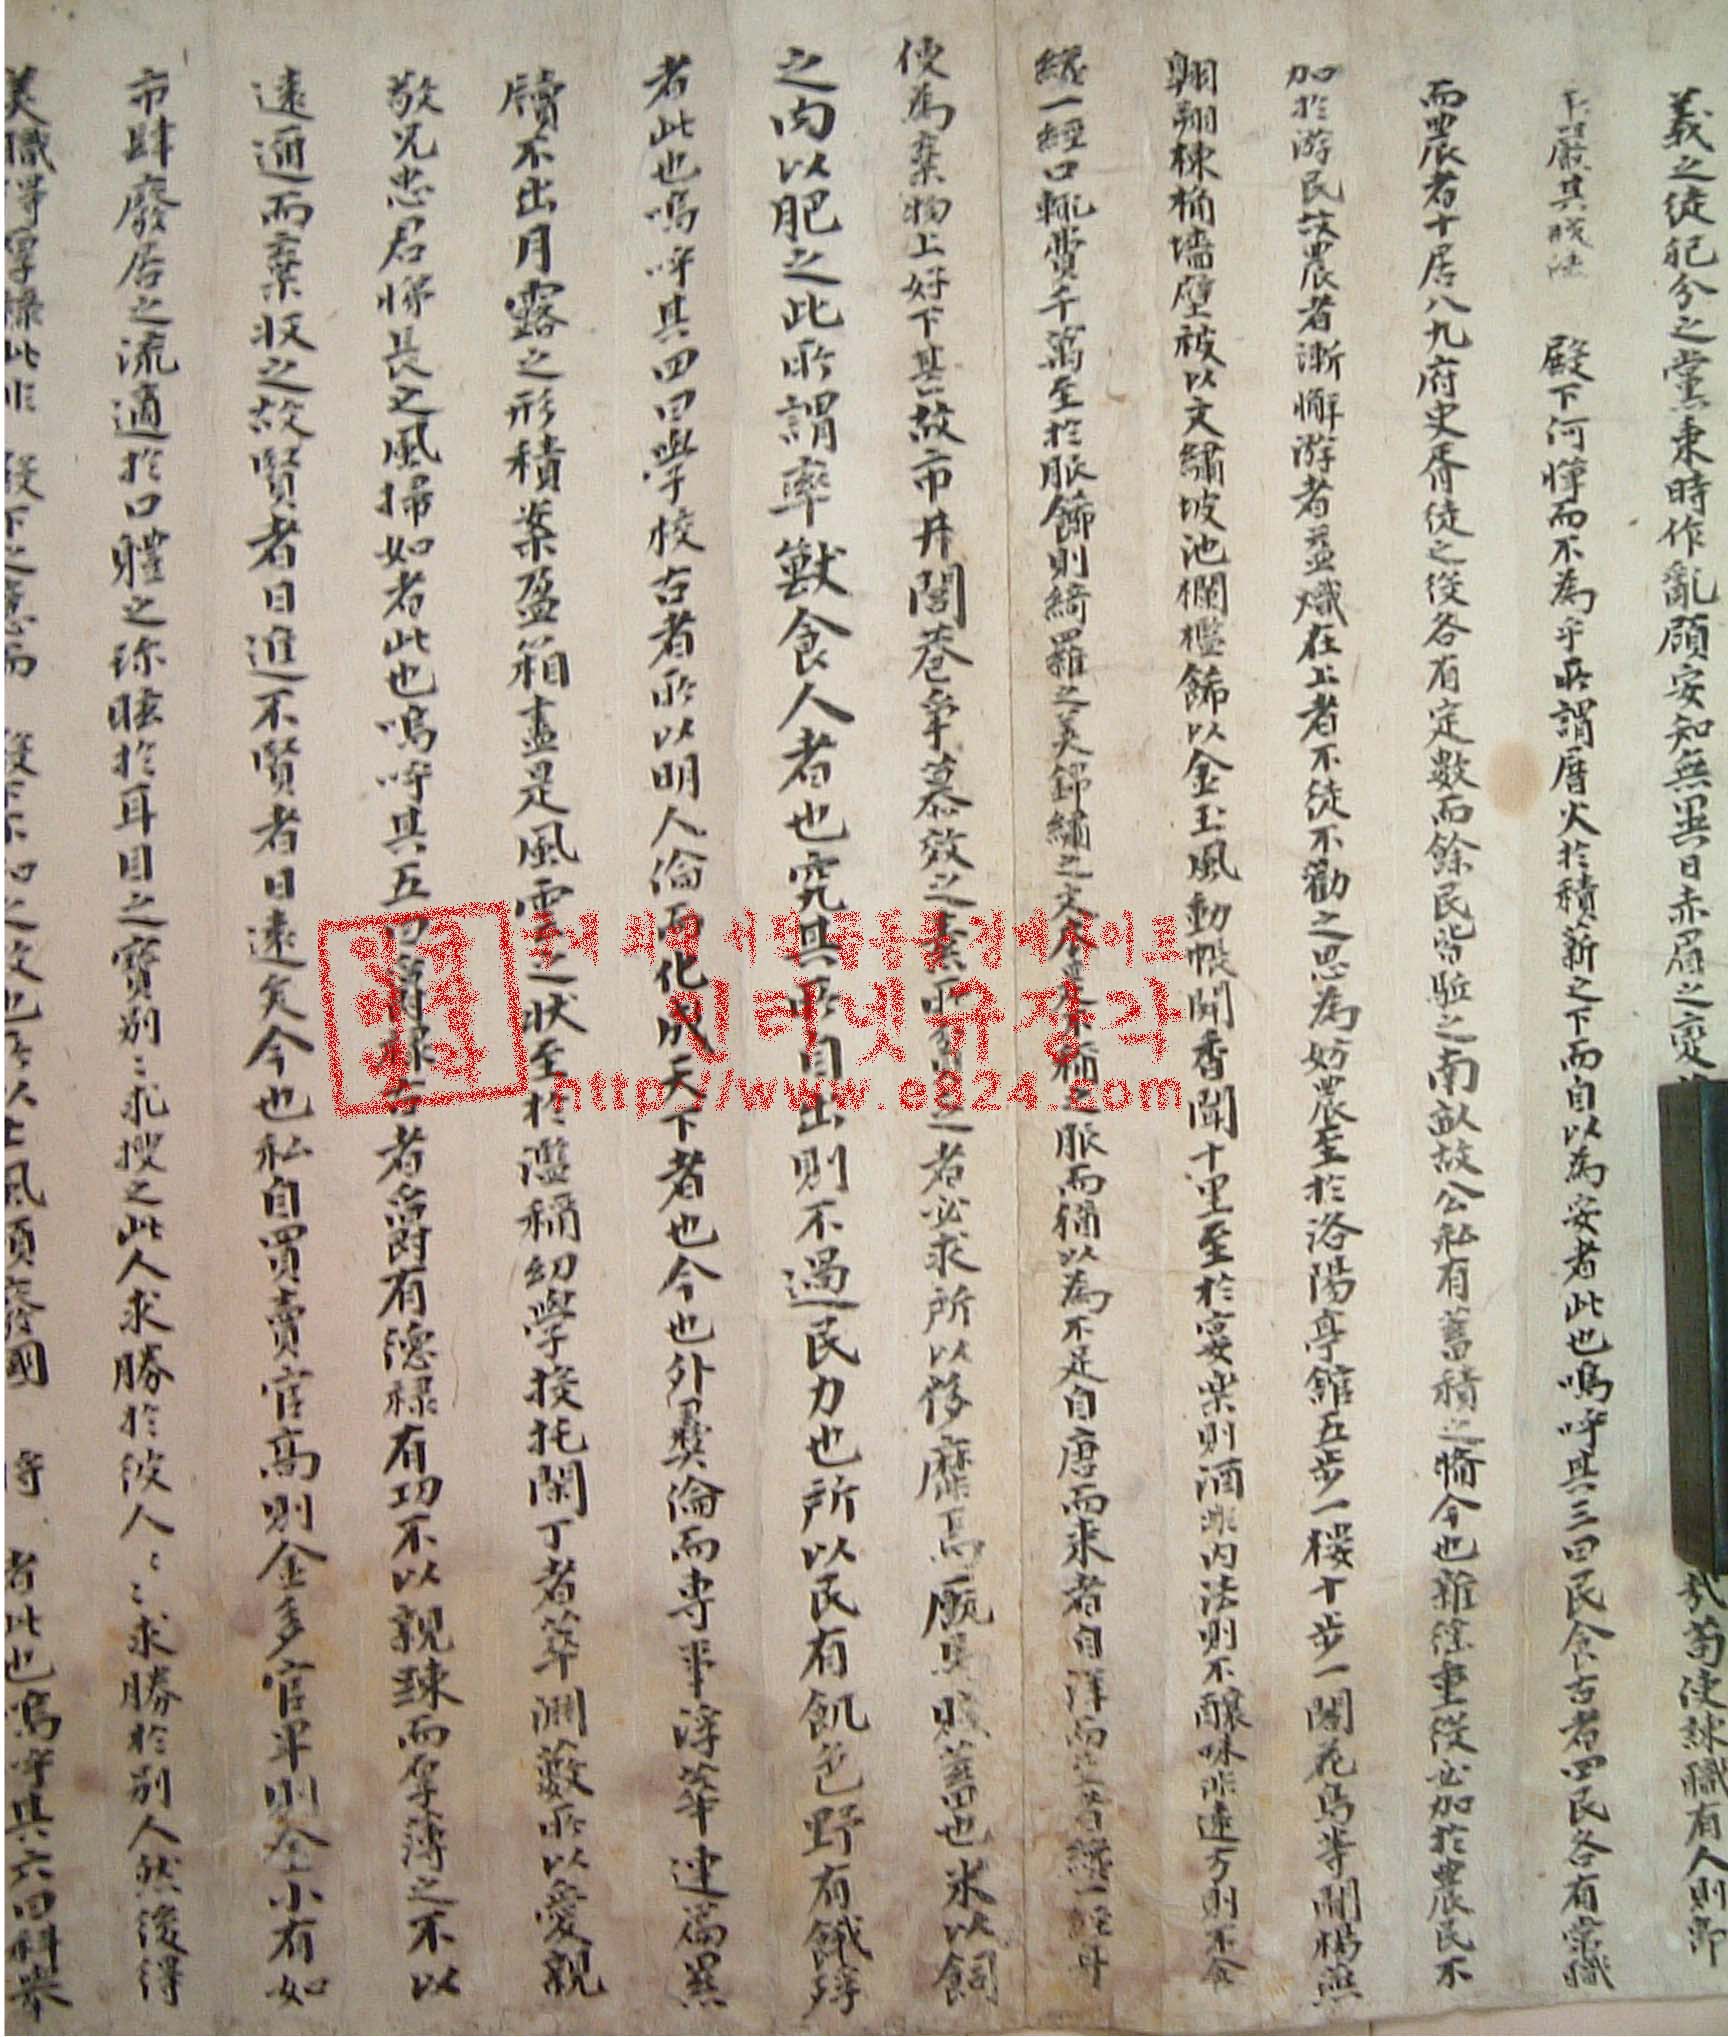 義之徒犯分之黨乘時作亂顧安知無異日赤眉之變 武苟使 職有人則節
下嚴其 法 殿下何憚而不為乎所謂厝火於積薪之下而自以為安者此也嗚呼其三曰民食古者四民各有常職
而農者十居八九府史胥徒之役各有定數而餘民皆驅之南畝故公私有蓄積之備今也雜徭重役必加於農民不
加於游民故農者漸懈游者益熾在上者不徒不勸之思為妨農至於洛陽亭館五步一樓十步一閣花鳥 鬪楊燕
翱翔棟桷墻壁被以文繡坡池欄檻飾以金玉風動帳開香聞十里至於宴樂則酒非內法則不釀味非遠方則不食
纔一經口輒費千萬至於服飾則綺羅之美錦繡之文 稱之服而猶以為不足自唐而來者自洋而 者纔一經身
便為棄物上好下甚故市井閭巷爭慕效之素所 之者必求所以侈靡焉廐馬賤畜也米以飼
之肉以肥之此所謂率獸食人者也究其所自出則不過民力也所以民有飢色野有餓殍
者此也嗚呼其四曰學校古者所以明人倫而化成天下者也今也外彛倫而專事浮華連篇累
牘不出月露之形積案盈箱盡是風雲之狀至於濫稱幼學投托閑丁者萃淵藪所以愛親
敬兄忠君悌長之風掃如者此也嗚呼其五曰爵祿古者爵有德祿有功不以親踈而厚薄之不以
遠邇而棄收之故賢者日進不賢者日遠矣今也私自買賣官高則金多官卑則金小有如
市肆廢居之流適於口體之珍眩於耳目之寶別〻求搜之此人求勝於彼人〻求勝於別人然後得
美職得厚祿此非 殿下之意而 殿下不知之故也 以士風頹 國 將 者此也嗚呼其六曰科擧
인터넷규장각
http://www.e824.com